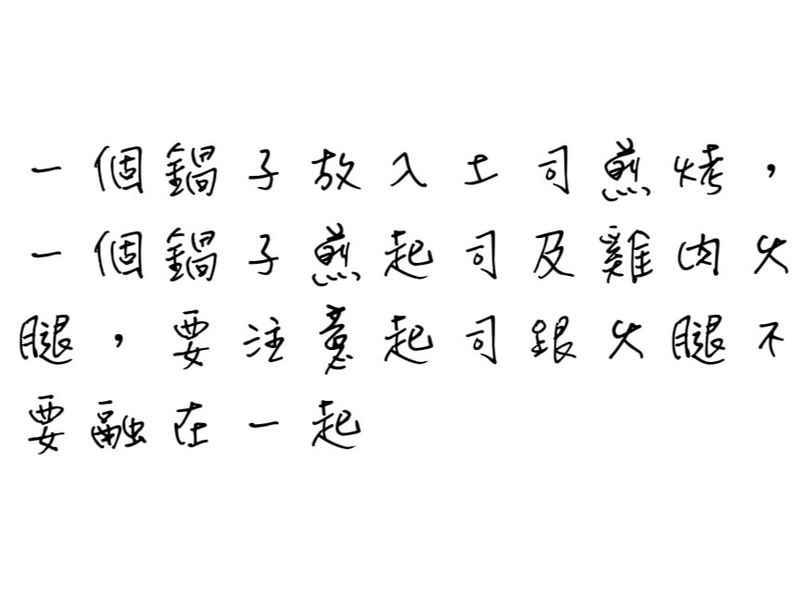 一個鍋子放入土司煎烤，
一個鍋子煎起司及雞肉火
腿，要注意起司跟火腿不
要融在一起